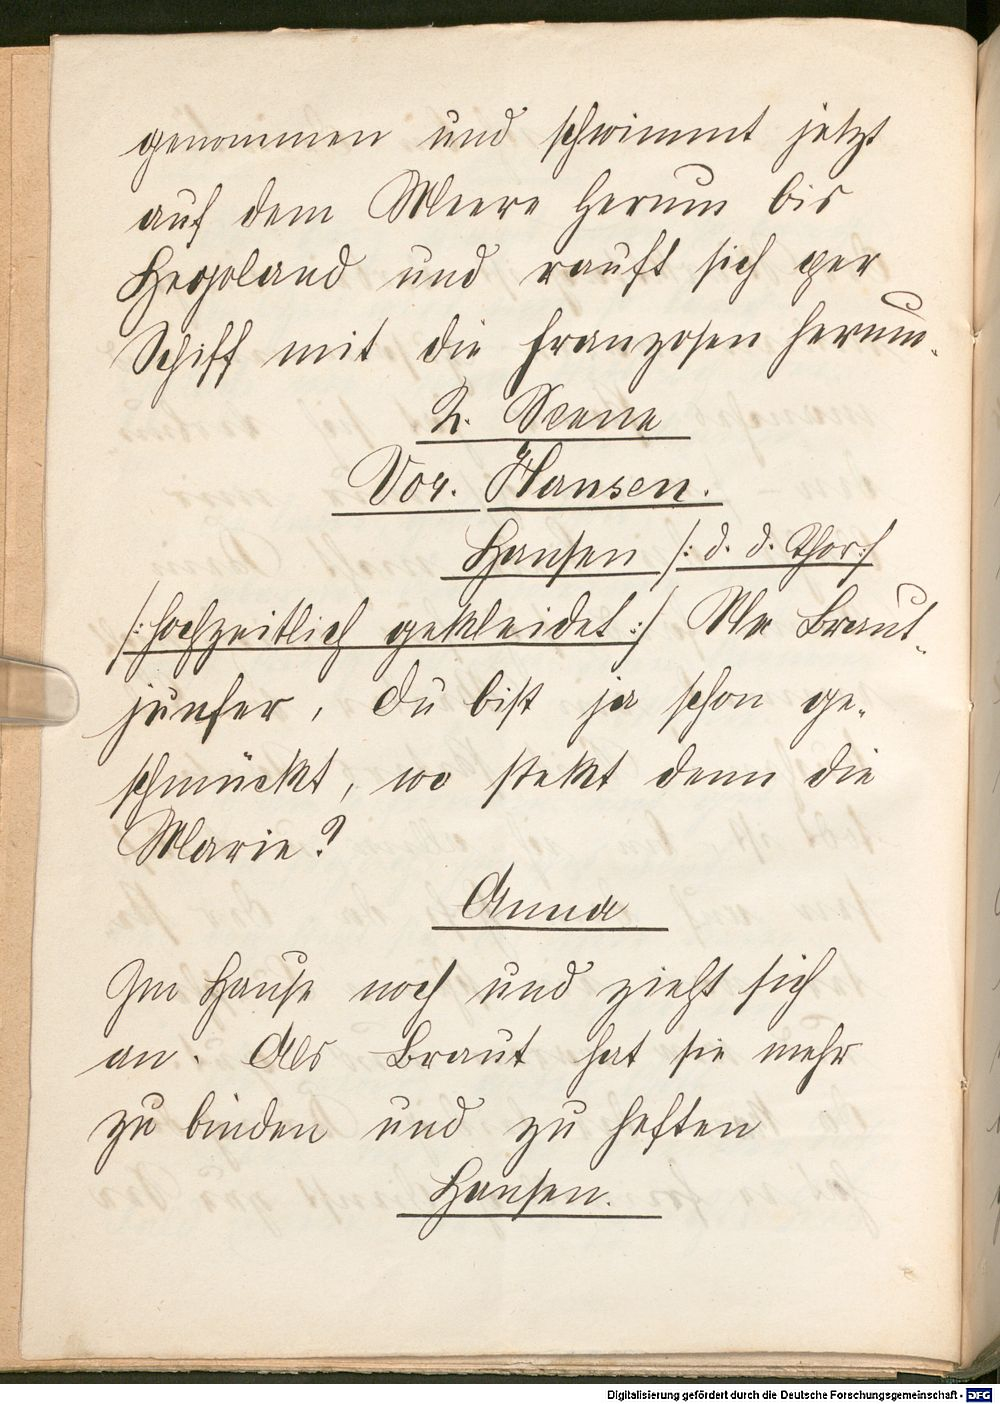 genommen und schwimmt jetzt
auf dem Meere herum bis
Hegoland und rauft sich per
Schiff mit die Franzosen herum.
2. Scene
Vor. Hansen.
Hansen /: d. d. Thor :/
/: hochzeitlich gekleidet :/ Na Braut-
junfer, du bist ja schon ge-
schmückt, wo stekt denn die
Marie?
Anna
Im Hause noch und zieht sich
an. Als Braut hat sie mehr
zu binden und zu heften
Hansen.
Digitalisierung gefördert durch die Deutsche Forschungsgemeinschaft - DFG